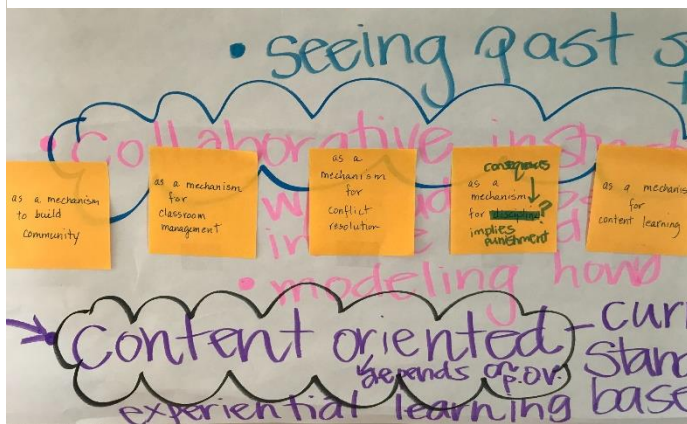 • seeing past s
• Collaborative inst
as a mechanism
to build
community
as a mechanism
for
classroom
management
as a
mechanism
for
conflict
resolution
consequences
as a
mechanism
for discipline?
implies
punishment
as a mechanis
for
content learning
• modeling how
Content oriented - curr
Stand
depends on p.o.v.
experiential learning base